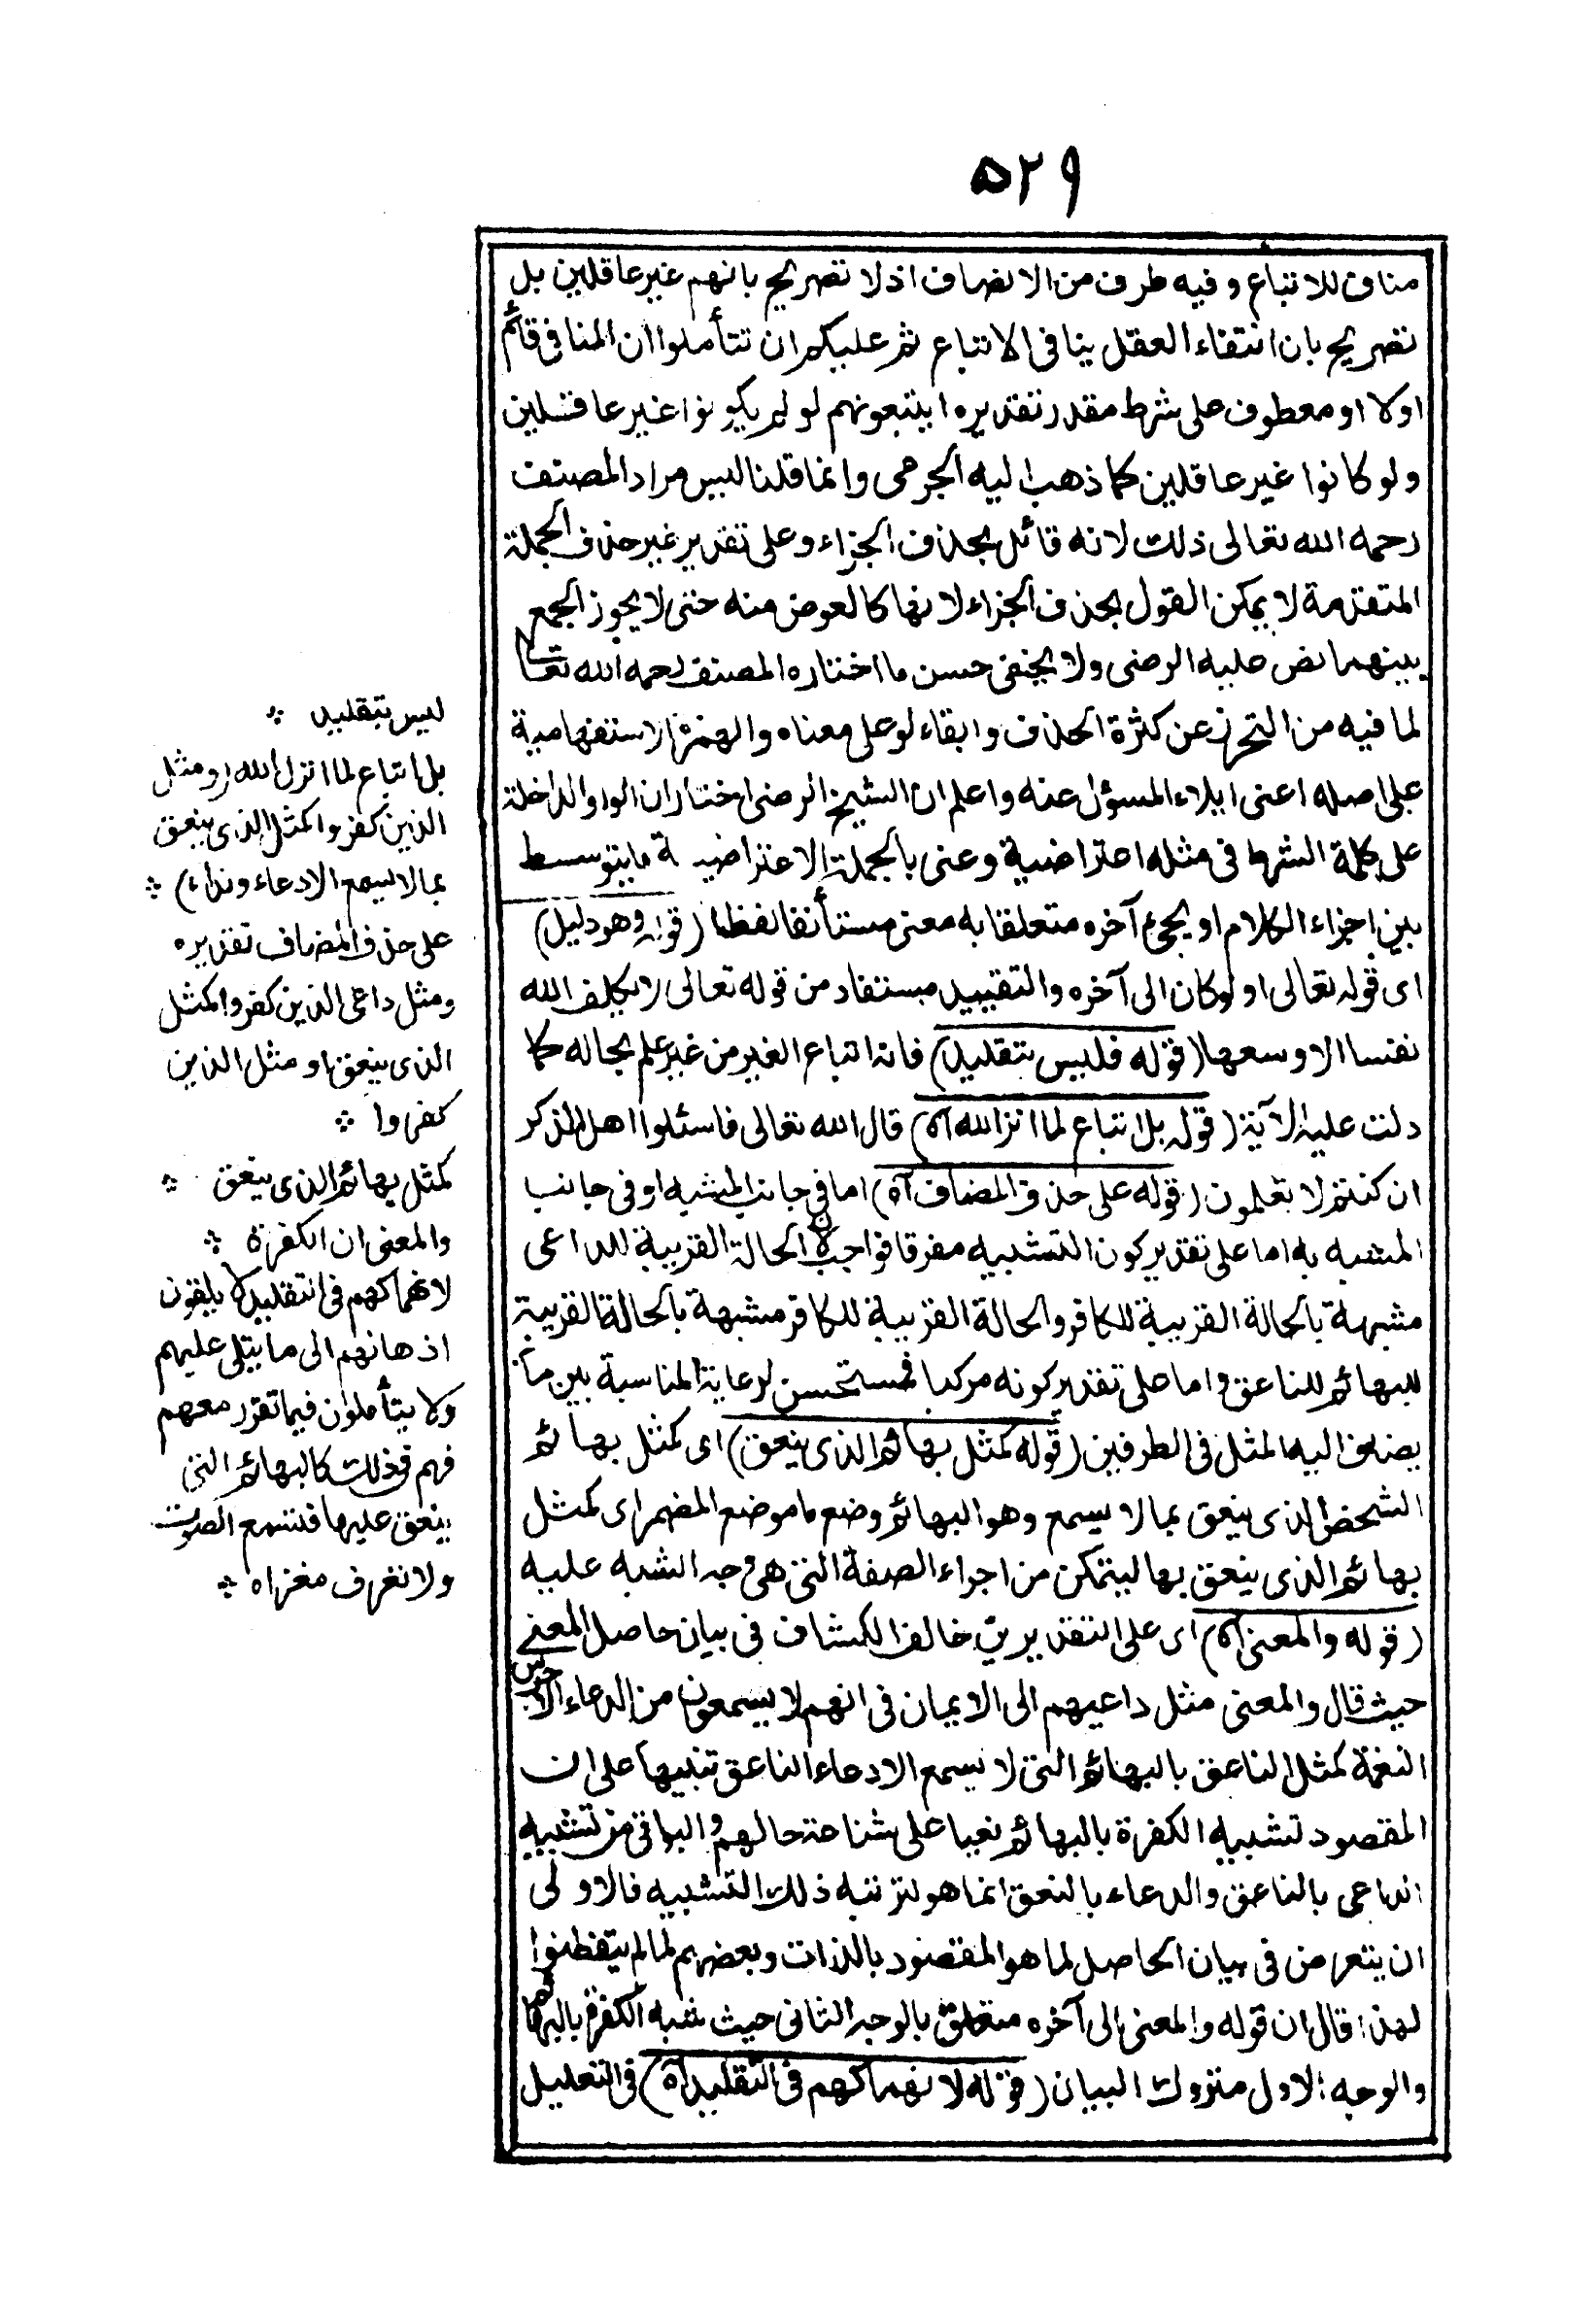 ٥٢٩
مناف للاتباع وفيه طرف من الانصاف اذ لا تصريح بانهم غير عاقلين بل
تصريح بان انتفاء العقل ينافى الاتباع ثم عليكم ان تتأملوا ان المنافى قائم
اولا او معطوف على شرط مقدر تقديره ايتبعونهم لو لم يكونوا غير عاقلين
ولو كانوا غير عاقلين كما ذهب اليه الجرمى وانما قلنا ليس مراد المصنف
رحمه الله تعالى ذلك لانه قائل بحذف الجزاء وعلى تقدير غير حذف الجملة
المتقدمة لا يمكن القول بحذف الجزاء لانها كالعوض منه حتى لا يجوز الجمع
بينهما نص عليه الرضى ولا يخفى حسن ما اختاره المصنف رحمه الله تعالى
لما فيه من التحرز عن كثرة الحذف وابقاء لو على معناه والهمزة الاستفهامية
على اصله اعنى ايلاء المسؤل عنه واعلم ان الشيخ الرضى اختار ان الواو الداخلة
على كلمة الشرط فى مثله اعتراضية وعنى بالجملة الاعتراضية ما يتوسط
بين اجزاء الكلام او يجئ آخره متعلقا به معنى مستأنفا لفظا (قوله وهو دليل)
اى قوله تعالى او لو كان الى آخره والتقييد مستفاد من قوله تعالى لا يكلف الله
نفسا الا وسعها (قوله فليس بتقليد) فانه اتباع الغير من غير علم بحاله كما
دلت عليه الآية (قوله بل اتباع لما انزل الله آه) قال الله تعالى فاسئلوا اهل الذكر
ان كنتم لا تعلمون (قوله على حذف المضاف آه) اما فى جانب المشبه او فى جانب
المشبه به اما على تقدير كون التشبيه مفرقا فواجب لان الحالة القريبة للداعى
مشبهة بالحالة القريبة للكافر والحالة القريبة للكافر مشبهة بالحالة القريبة
للبهائم للناعق واما على تقدير كونه مركبا فمستحسن لرعاية المناسبة بين ما
يضاف اليه المثل فى الطرفين (قوله كمثل بهائم الذى ينعق) اى كمثل بهائم
الشخص الذى ينعق بما لا يسمع وهو البهائم وضع ما موضع المضمر اى كمثل
بهائم الذى ينعق بها ليتمكن من اجراء الصفة التى هى وجه الشبه عليه
(قوله والمعنى آه) اى على التقديرين خالف الكشاف فى بيان حاصل المعنى
حيث قال والمعنى مثل داعيهم الى الايمان فى انهم لا يسمعون من الدعاء الا جرس
النغمة كمثل الناعق بالبهائم التى لا يسمع الا دعاء الناعق تنبيها على ان
المقصود تشبيه الكفرة بالبهائم نعيا على شناعة حالهم والبواقى من تشبيه
الداعى بالناعق والدعاء بالنعق انما هو لترتبه ذلك التشبيه فالاولى
ان يتعرض فى بيان الحاصل لما هو المقصود بالذات وبعضهم لما لم يتفطنوا
لهذا قال ان قوله والمعنى الى آخره متعلق بالوجه الثانى حيث شبه الكفرة بالبهائم
والوجه الاول متروك البيان (قوله لانهماكهم فى التقليد آه) فى التعليل
ليس بتقليد
بل اتباع لما انزل الله (ومثل
الذين كفروا كمثل الذى ينعق
بما لا يسمع الا دعاء ونداء)
على حذف المضاف تقديره
ومثل داعى الذين كفروا كمثل
الذى ينعق او مثل الذين
كفروا
كمثل بهائم الذى ينعق
والمعنى ان الكفرة
لانهماكهم فى التقليد لا يلقون
اذهانهم الى ما يتلى عليهم
ولا يتأملون فيما تقرر معهم
فهم فى ذلك كالبهائم التى
ينعق عليها فتسمع الصوت
ولا تعرف مغزاه